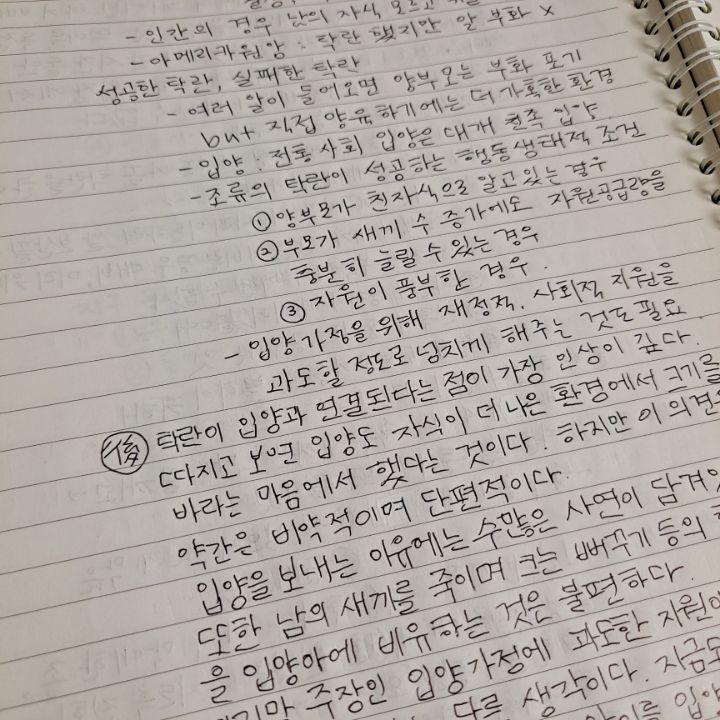 - 인간의 경우 남의 자식 모르고
- 아메리카원앙 : 탁란 했지만 알 부화 X
성공한 탁란, 실패한 탁란
- 여러 알이 들어오면 양부모는 부화 포기
but 직접 양육하기에는 더 가혹한 환경
- 입양 : 전통사회 입양은 대개 친족 입양.
- 조류의 탁란이 성공하는 행동생태적 조건
① 양부모가 친자식으로 알고있는 경우
② 부모가 새끼 수 증가에도 자원공급량을
충분히 늘릴 수 있는 경우
③ 자원이 풍부한 경우.
- 입양가정을 위해 재정적, 사회적 지원을
과도할 정도로 넘치게 해주는 것도 필요.
後 탁란이 입양과 연결된다는 점이 가장 인상이 깊다.
따지고 보면 입양도 자식이 더 나은 환경에서 크기를
바라는 마음에서 했다는 것이다. 하지만 이 의견
약간은 비약적이며 단편적이다.
입양을 보내는 이유에는 수많은 사연이 담겨있
또한 남의 새끼를 죽이며 크는 뻐꾸기 등의
을 입양아에 비유하는 것은 불편하다.
주장인 입양가정에 과도한 지원이
다른 생각이다. 지금도